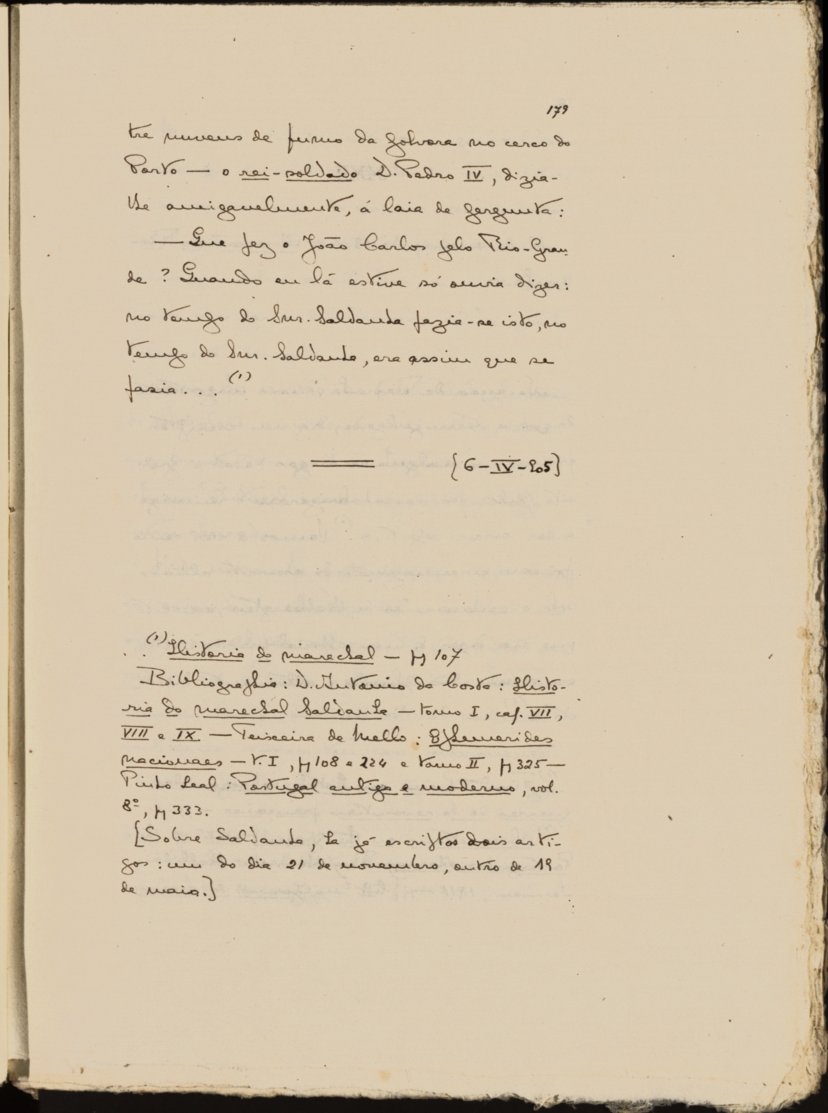 179
tre nuvens de fumo da polvora no cerco do
Porto — o rei-soldado D. Pedro IV, dizia-
lhe amigavelmente, á laia de pergunta:
— Que fez o João Carlos pelo Rio-Gran
de? Quando eu lá estive só ouvia dizer:
no tempo do Snr. Saldanha fazia-se isto, no
tempo do Snr. Saldanha, era assim que se
fazia... (1)
{6-IV-905}
(1) Historia do marechal — p 107
Bibliographia: D. Antonio da Costa: Histo-
ria do marechal Saldanha — tomo I, cap. VII,
VIII e IX — Teixeira de Mello: Ephemerides
nacionaes — T. I, p 108 e 224 e tomo II, p 325 —
Pinho Leal: Portugal antigo e moderno, vol.
8º, p 333.
[Sobre Saldanha, ha já escriptos dois arti-
gos: um do dia 21 de novembro, outro de 19
de maio.]